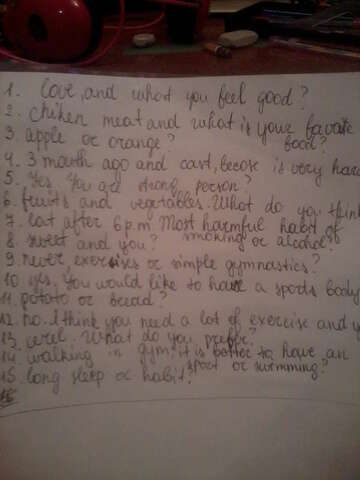 1. love, and what you feel good?
2. chiken meat and what is your favorate food?
3. apple or orange?
4. 3 mouth ago and cast, becose is very hard
5. Yes. You are strong person?
6. fruits and vegetables. What do you think
7. eat after 6 p.m. Most harmful habit of smoking or alcohol?
8. sweet and you?
9. never exercises or simple gymnastics?
10. yes, you would like to have a sports body
11. potato or bread?
12. no. I think you need a lot of exercise and y
13. What do you preffer?
14. walking in gym, it is better to have an sport or swimming?
15. long sleep or habit?
16